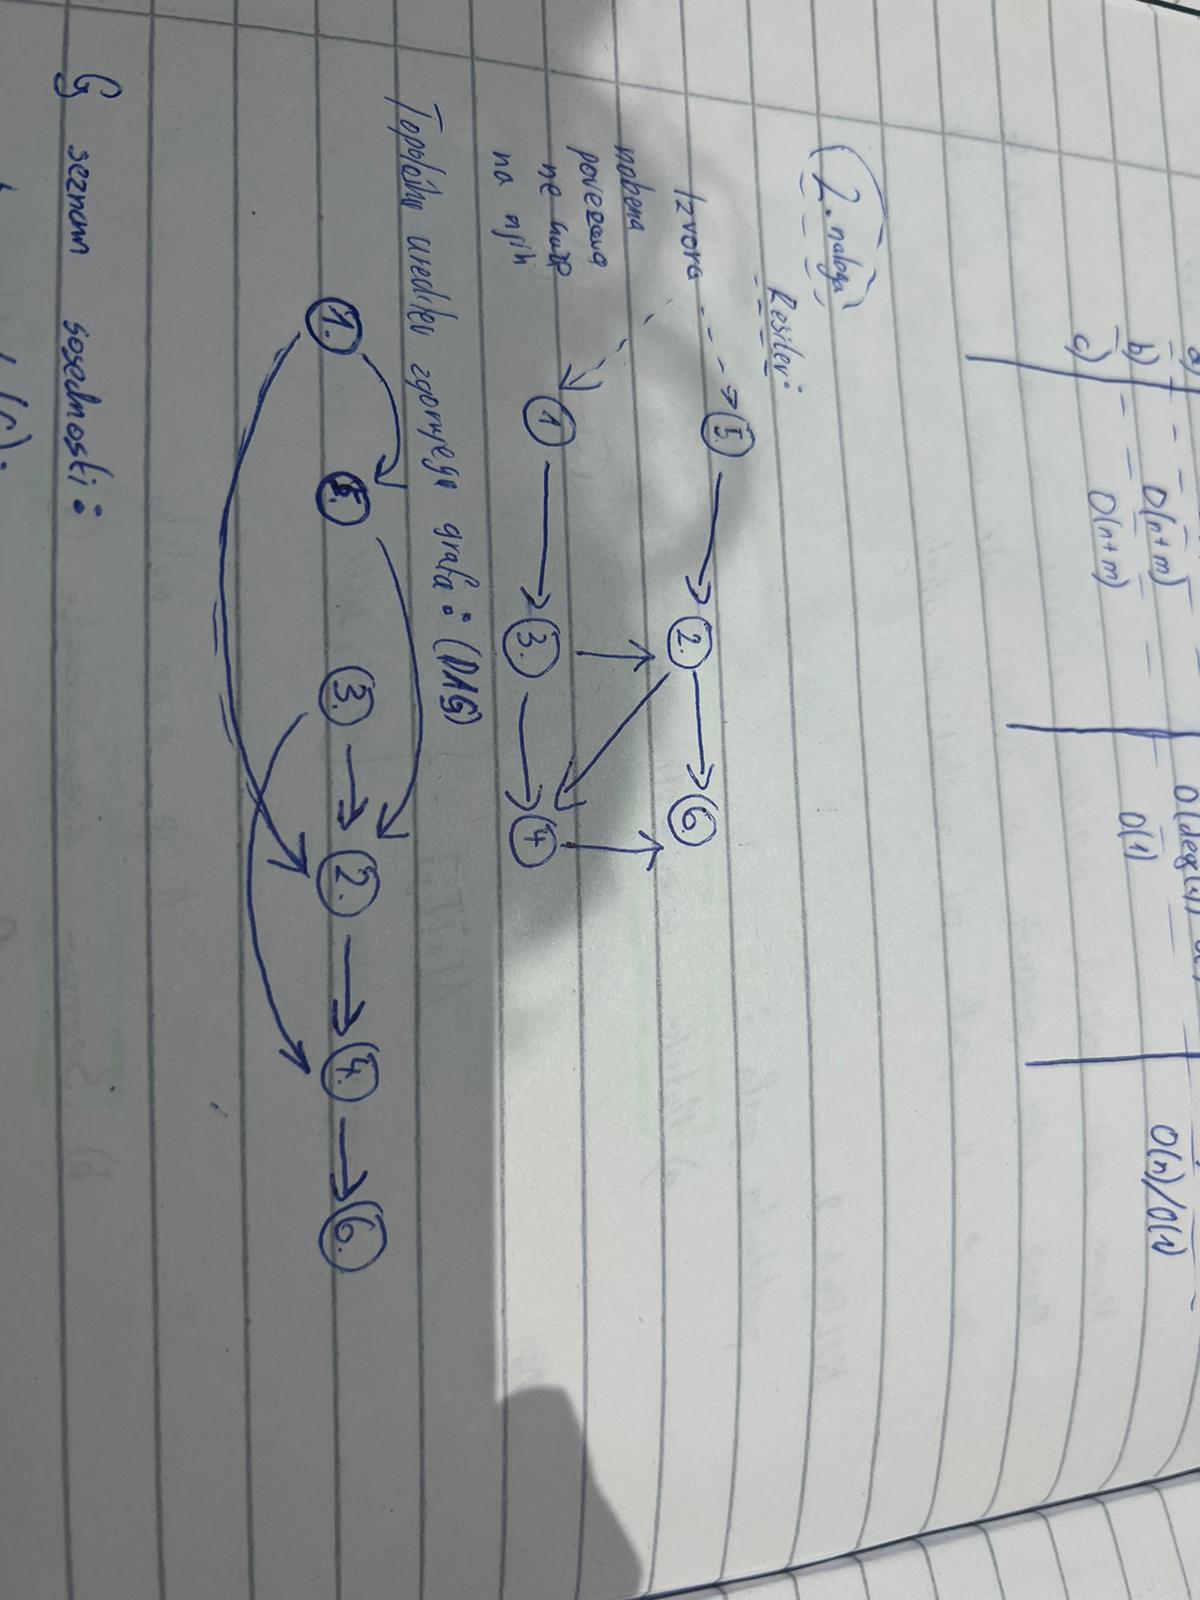 a)
O(deg(
b) O(n+m) O(1) O(n)/O(1)
c) O(n+m)
2. naloga
Rešitev:
Izvora
nobena
povezava
ne kaže
na njih
5. 2. 6.
1 3. 4
Topološka ureditev zgornjega grafa: (DAG)
1. 5. 3. 2. 4. 6.
G seznam sosednosti:
(G):